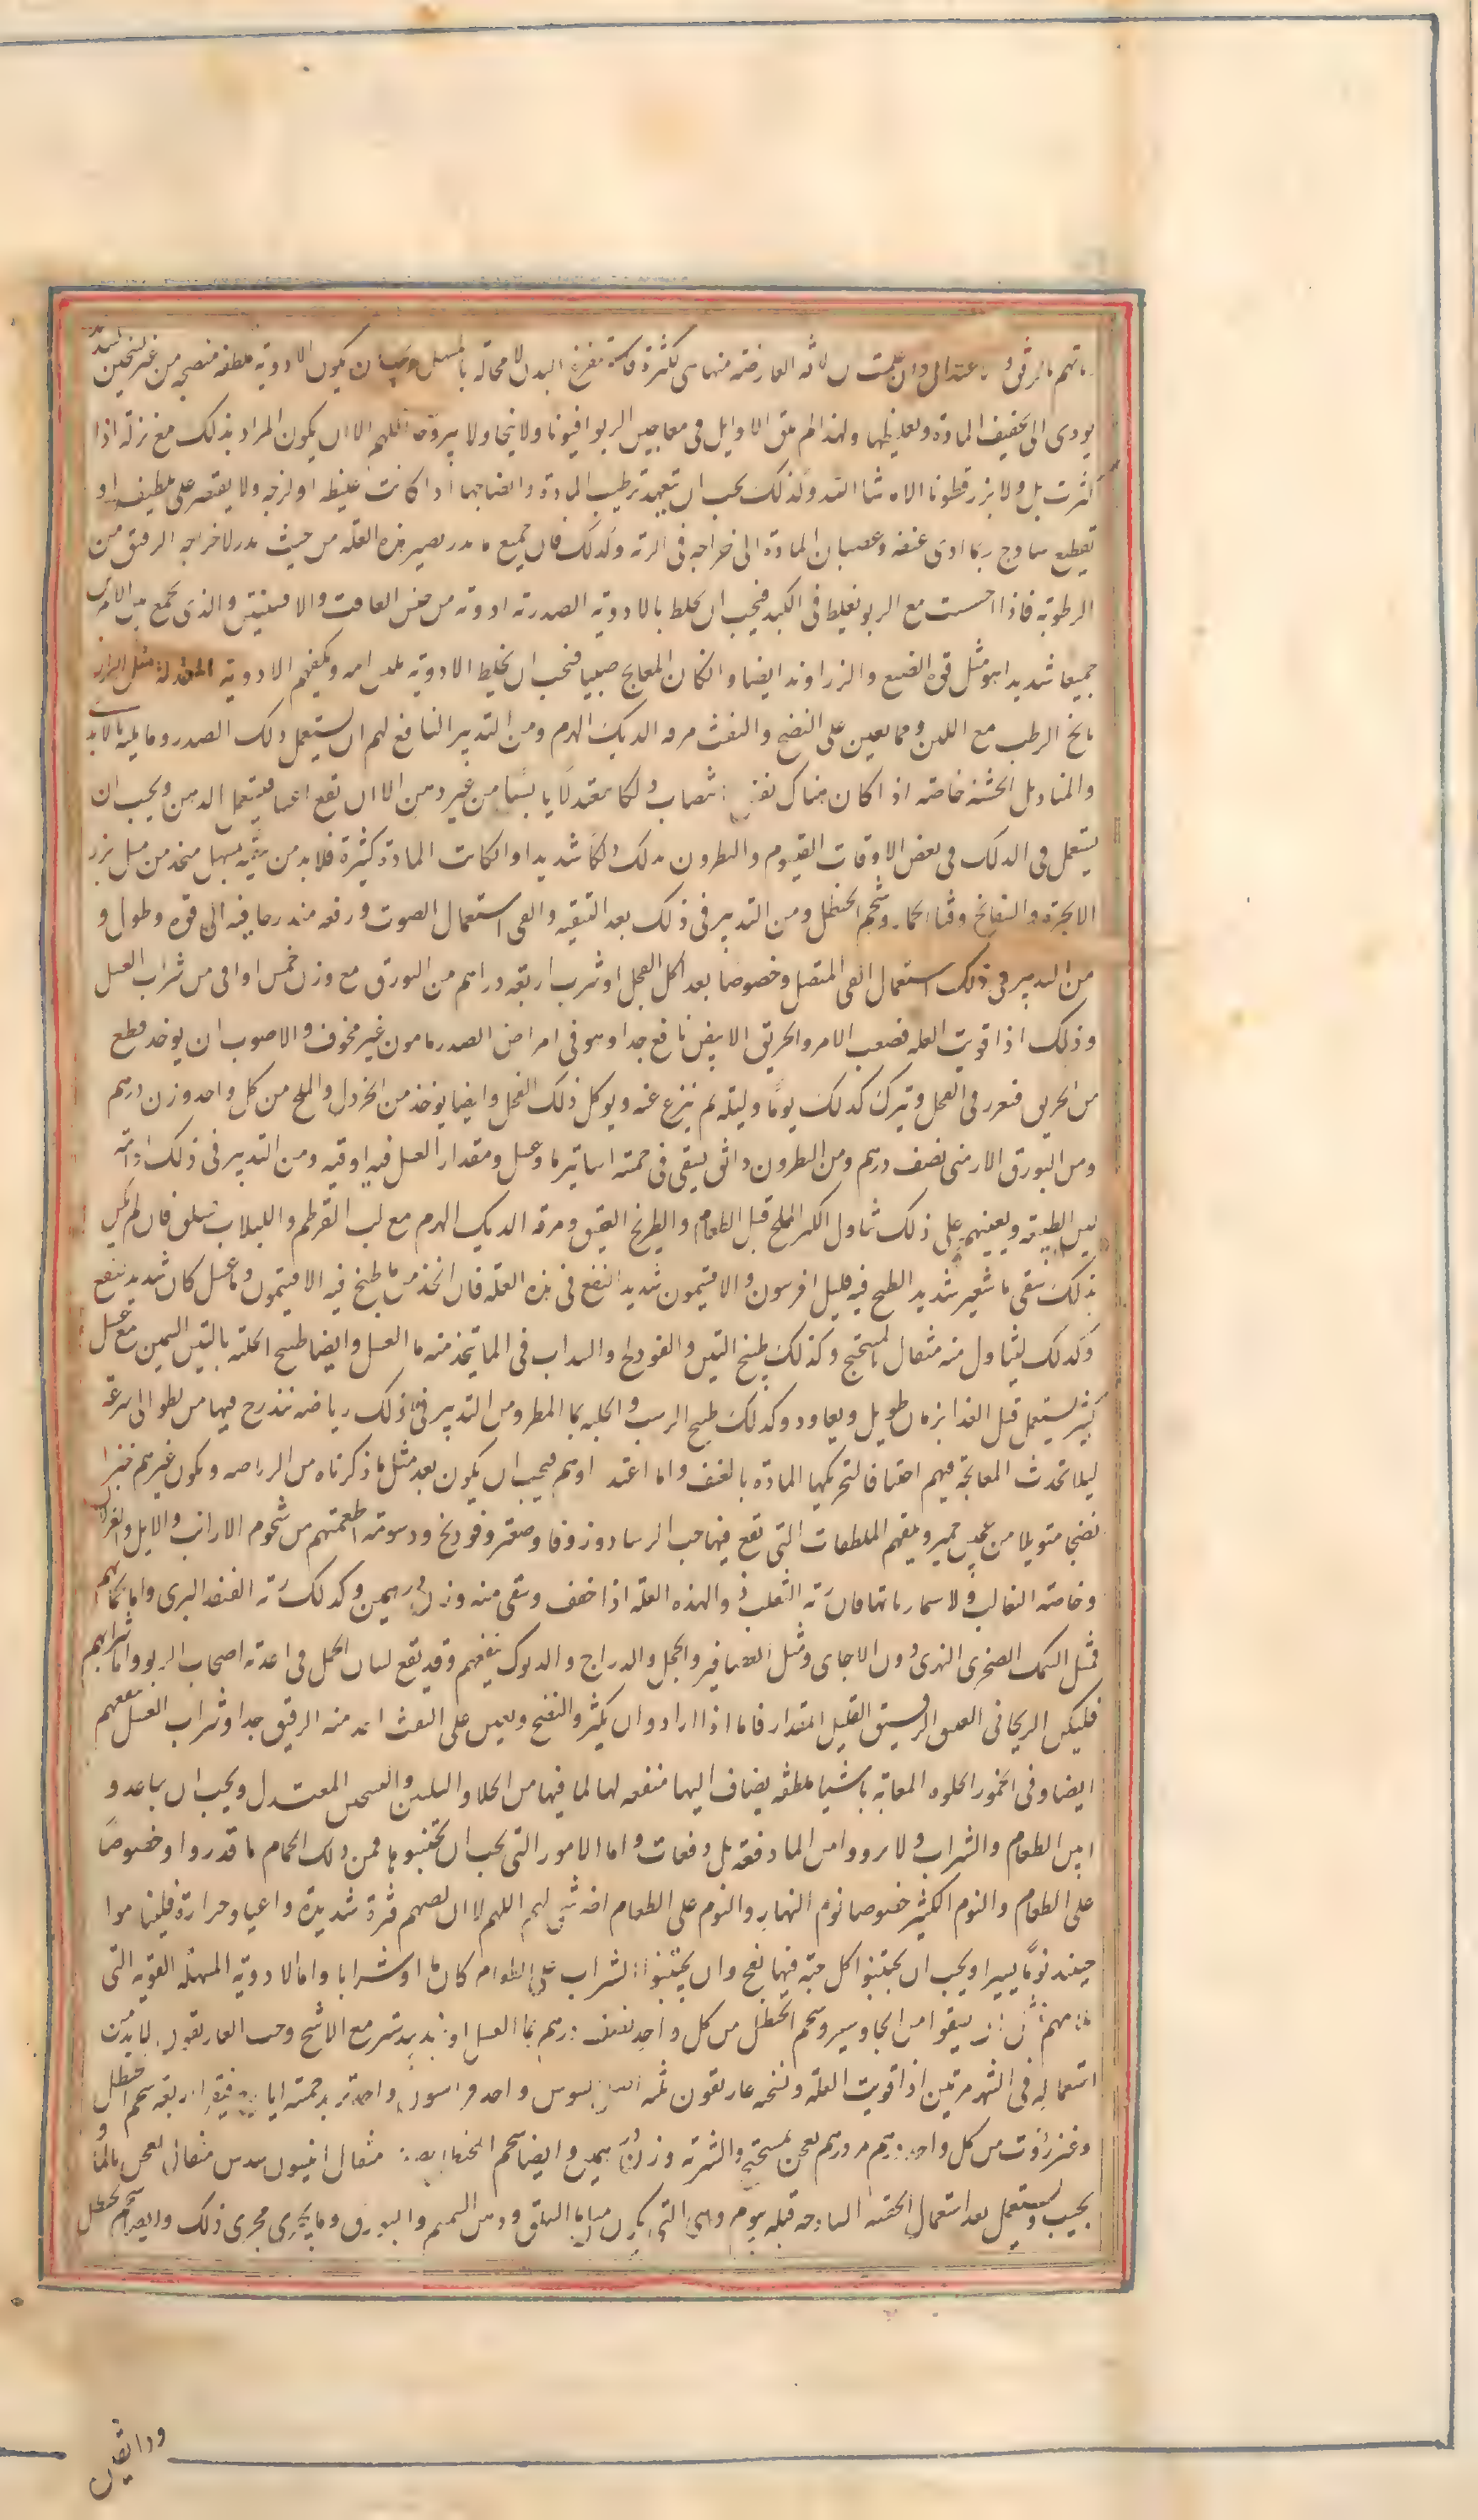 بالرفق و باعتدال وان علمت ان الآفة العارضة منها هى لكثرة فاستفرغ البدن لا محالة بالمسهل ويجب ان يكون الادوية ملطفة منضجة من غير تسخين شديد
يودى الى تجفيف المادة وتغليظها ولهذا لم يلق الاوايل فى معاجين الربو افيونا ولا بنجا ولا يبروحا اللهم الا ان يكون المراد بذلك منع نزلة اذا
كثرت بل ولا بزر قطونا الا ما شا الله ولذلك يجب ان تتعهد ترطيب المادة وانضاجها اذا كانت غليظة او لزجة ولا يقتصر على تلطيف او
تقطيع ساذج ربما ادى عنفه وعصيان المادة الى خراجة فى الرية وكذلك فان جميع ما يدر يضر هذه العلة من حيث يدر لاخراجه الرقيق من
الرطوبة فاذا احسست مع الربو بغلظ فى الكبد فيجب ان تخلط بالادوية الصدرية ادوية من جنس الغافت والافسنتين والذى يجمع بين الامرين
جميعا شديدا هو مثل قوة الصبغ والزراوند ايضا وان كان المعالج صبيا فيجب ان يخلط الادوية بلبن امه ويكفيهم الادوية المعتدلة مثل الراز
يانج الرطب مع اللبن ومما يعين على النضج والنفث مرقة الديك الهرم ومن التدبير النافع لهم ان يستعمل دلك الصدر وما يليه بالايدى
والمناديل الخشنة خاصة اذا كان هناك نفس انتصاب دلكا معتدلا يابسا من غير دهن الا ان تقع اعيا فيستعمل الدهن ويجب ان
يستعمل فى الدلك فى بعض الاوقات القيسوم والنطرون يدلك دلكا شديدا وان كانت المادة كثيرة فلا بد من تنقية بمسهل متخذ من مثل بزر
الانجرة والبسفايج وقثا الحمار وشحم الحنظل ومن التدبير فى ذلك بعد التنقية والقى استعمال الصوت ورفعه متدرجا فيه الى قوة وطول و
من التدبير فى ذلك استعمال القى المتصل وخصوصا بعد اكل الفجل او شرب اربعة دراهم من البورق مع وزن خمس اواقى من شراب العسل
وذلك اذا قويت العلة فصعب الامر والخربق الابيض نافع جدا وهو فى امراض الصدر مامون غير مخوف والاصوب ان يوخذ قطع
من الخربق فيغرز فى الفجل ويترك كذلك يوما وليلة ثم ينزع عنه ويوكل ذلك الفجل وايضا يوخذ من الخردل والملح من كل واحد وزن درهم
ومن البورق الارمنى نصف درهم ومن النطرون دانق يسقى فى خمسة اساتير ما وعسل ومقدار العسل فيه اوقية ومن التدبير فى ذلك ادامة
تليين الطبيعة ويعينهم على ذلك تناول الكبر المملح قبل الطعام والطريخ العتيق ومرقة الديك الهرم مع لب القرطم واللبلاب سلق فان لم تلن
بذلك سقى ما شعير شديد الطبخ فيه قليل افربيون والافتيمون شديد النفع فى هذه العلة فان اتخذ من ما طبخ فيه الافتيمون وما عسل كان شديد نفع
وكذلك يتناول منه مثقال بالميبختج وكذلك طبيخ التين والفودنج والسداب فى الما يتخذ منه ما العسل وايضا طبيخ الحلبة بالتين السمين مع عسل
كثير يستعمل قبل الغذا بزمان طويل ويعاود وكذلك طبيخ الزبيب والحلبة بما المطر ومن التدبير فى ذلك رياضة يتدرج فيها من بطو الى سرعة
ليلا تحدث المعالجة فيهم اختناقا لتحريكها المادة بالعنف واما اغتذاوهم فيجب ان يكون بعد مثل ما ذكرناه من الرياضة ويكون خبزهم خبزا
نضيجا متوبلا من عجين خمير وبنقلهم الملطفات التى تقع فيها حب الرشاد وزوفا وصعتر وفودنج ودسومة اطعمتهم من شحوم الارانب والايل والغزلان
وخاصة الثعالب ولا سيما رياتها فان رية الثعلب دوا لهذه العلة اذا جفف وسقى منه وزن درهمين وكذلك رية القنفذ البرى واما لحمانهم
فمثل السمك الصخرى النهرى دون الاجامى ومثل العصافير والحجل والدراج والديوك ينفعهم وقد يقع لسان الحمل فى اغذية اصحاب الربو واما شرابهم
فليكن الريحانى العتيق الرقيق القليل المقدار فاما اذا ارادوا ان يكثروا النضج ويعين على النفث اخذ منه الرقيق جدا وشراب العسل ينفعهم
ايضا وفى الخمور الحلوة المعانة باشيا ملطفة يضاف اليها منفعة لها لما فيها من الجلا والتليين والتسخين المعتدل ويجب ان يباعدوا
بين الطعام والشراب ولا يرووا من الما دفعة بل دفعات واما الامور التى يجب ان يجتنبوها فمن ذلك الحمام ما قدروا وخصوصا
على الطعام والنوم الكثير خصوصا نوم النهار والنوم على الطعام اضر شى لهم اللهم الا ان يصيبهم فترة شديدة واعيا وحرارة فليناموا
حينئذ نوما يسيرا ويجب ان يجتنبوا اكل حبة فيها نفخ وان يجتنبوا الشراب على الطعام كان ما او شرابا واما الادوية المسهلة القوية التى
منهم ان يسقوا من الجاوشير وشحم الحنظل من كل واحد نصف درهم بما العسل او جندبيدستر مع الاشج وحب الغاريقون لا بد من
استعماله فى الشهر مرتين اذا قويت العلة ونسخته غاريقون ثلثة اصل السوس واحد فراسيون واحد تربد خمسة ايارج فيقرا اربعة شحم حنظل
وعنزروت من كل واحد درهم مر درهم يعجن بميبختج والشربة وزن درهمين وايضا شحم الحنظل نصف مثقال انيسون سدس مثقال يعجن بالما
يحبب ويستعمل بعد استعمال الحقنة الساذجة قبله بيوم وهى التى تكون من ما السلق ودهن السمسم والبورق وما يجرى مجرى ذلك وايضا شحم الحنظل
ودانقين